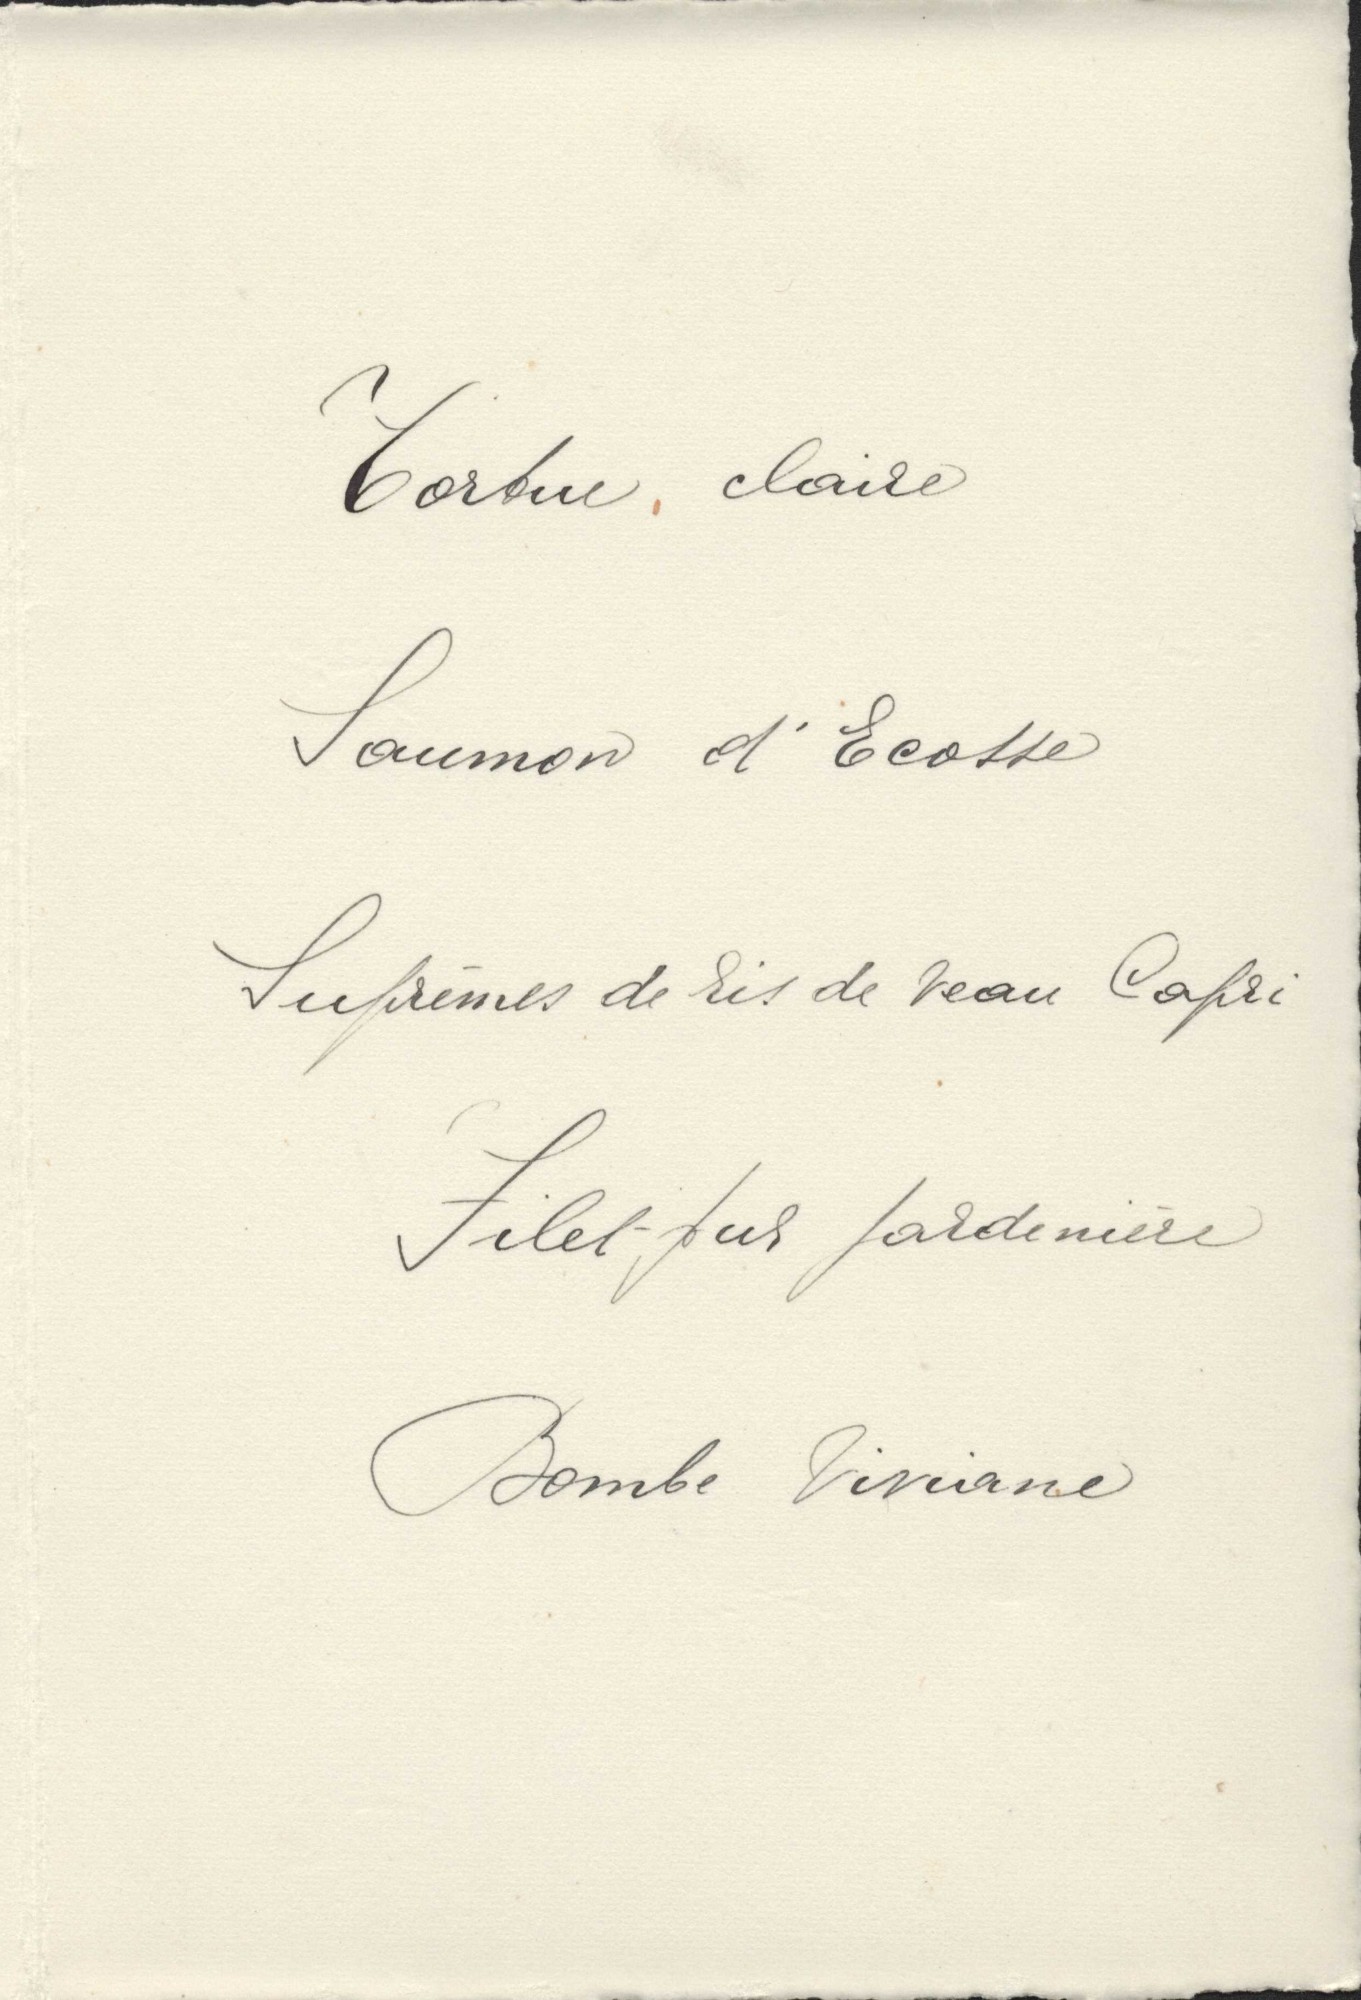 Tortue claire
Saumon d'Ecosse
Suprêmes de ris de veau Capri
Filet pur jardenière
Bombe Viviane